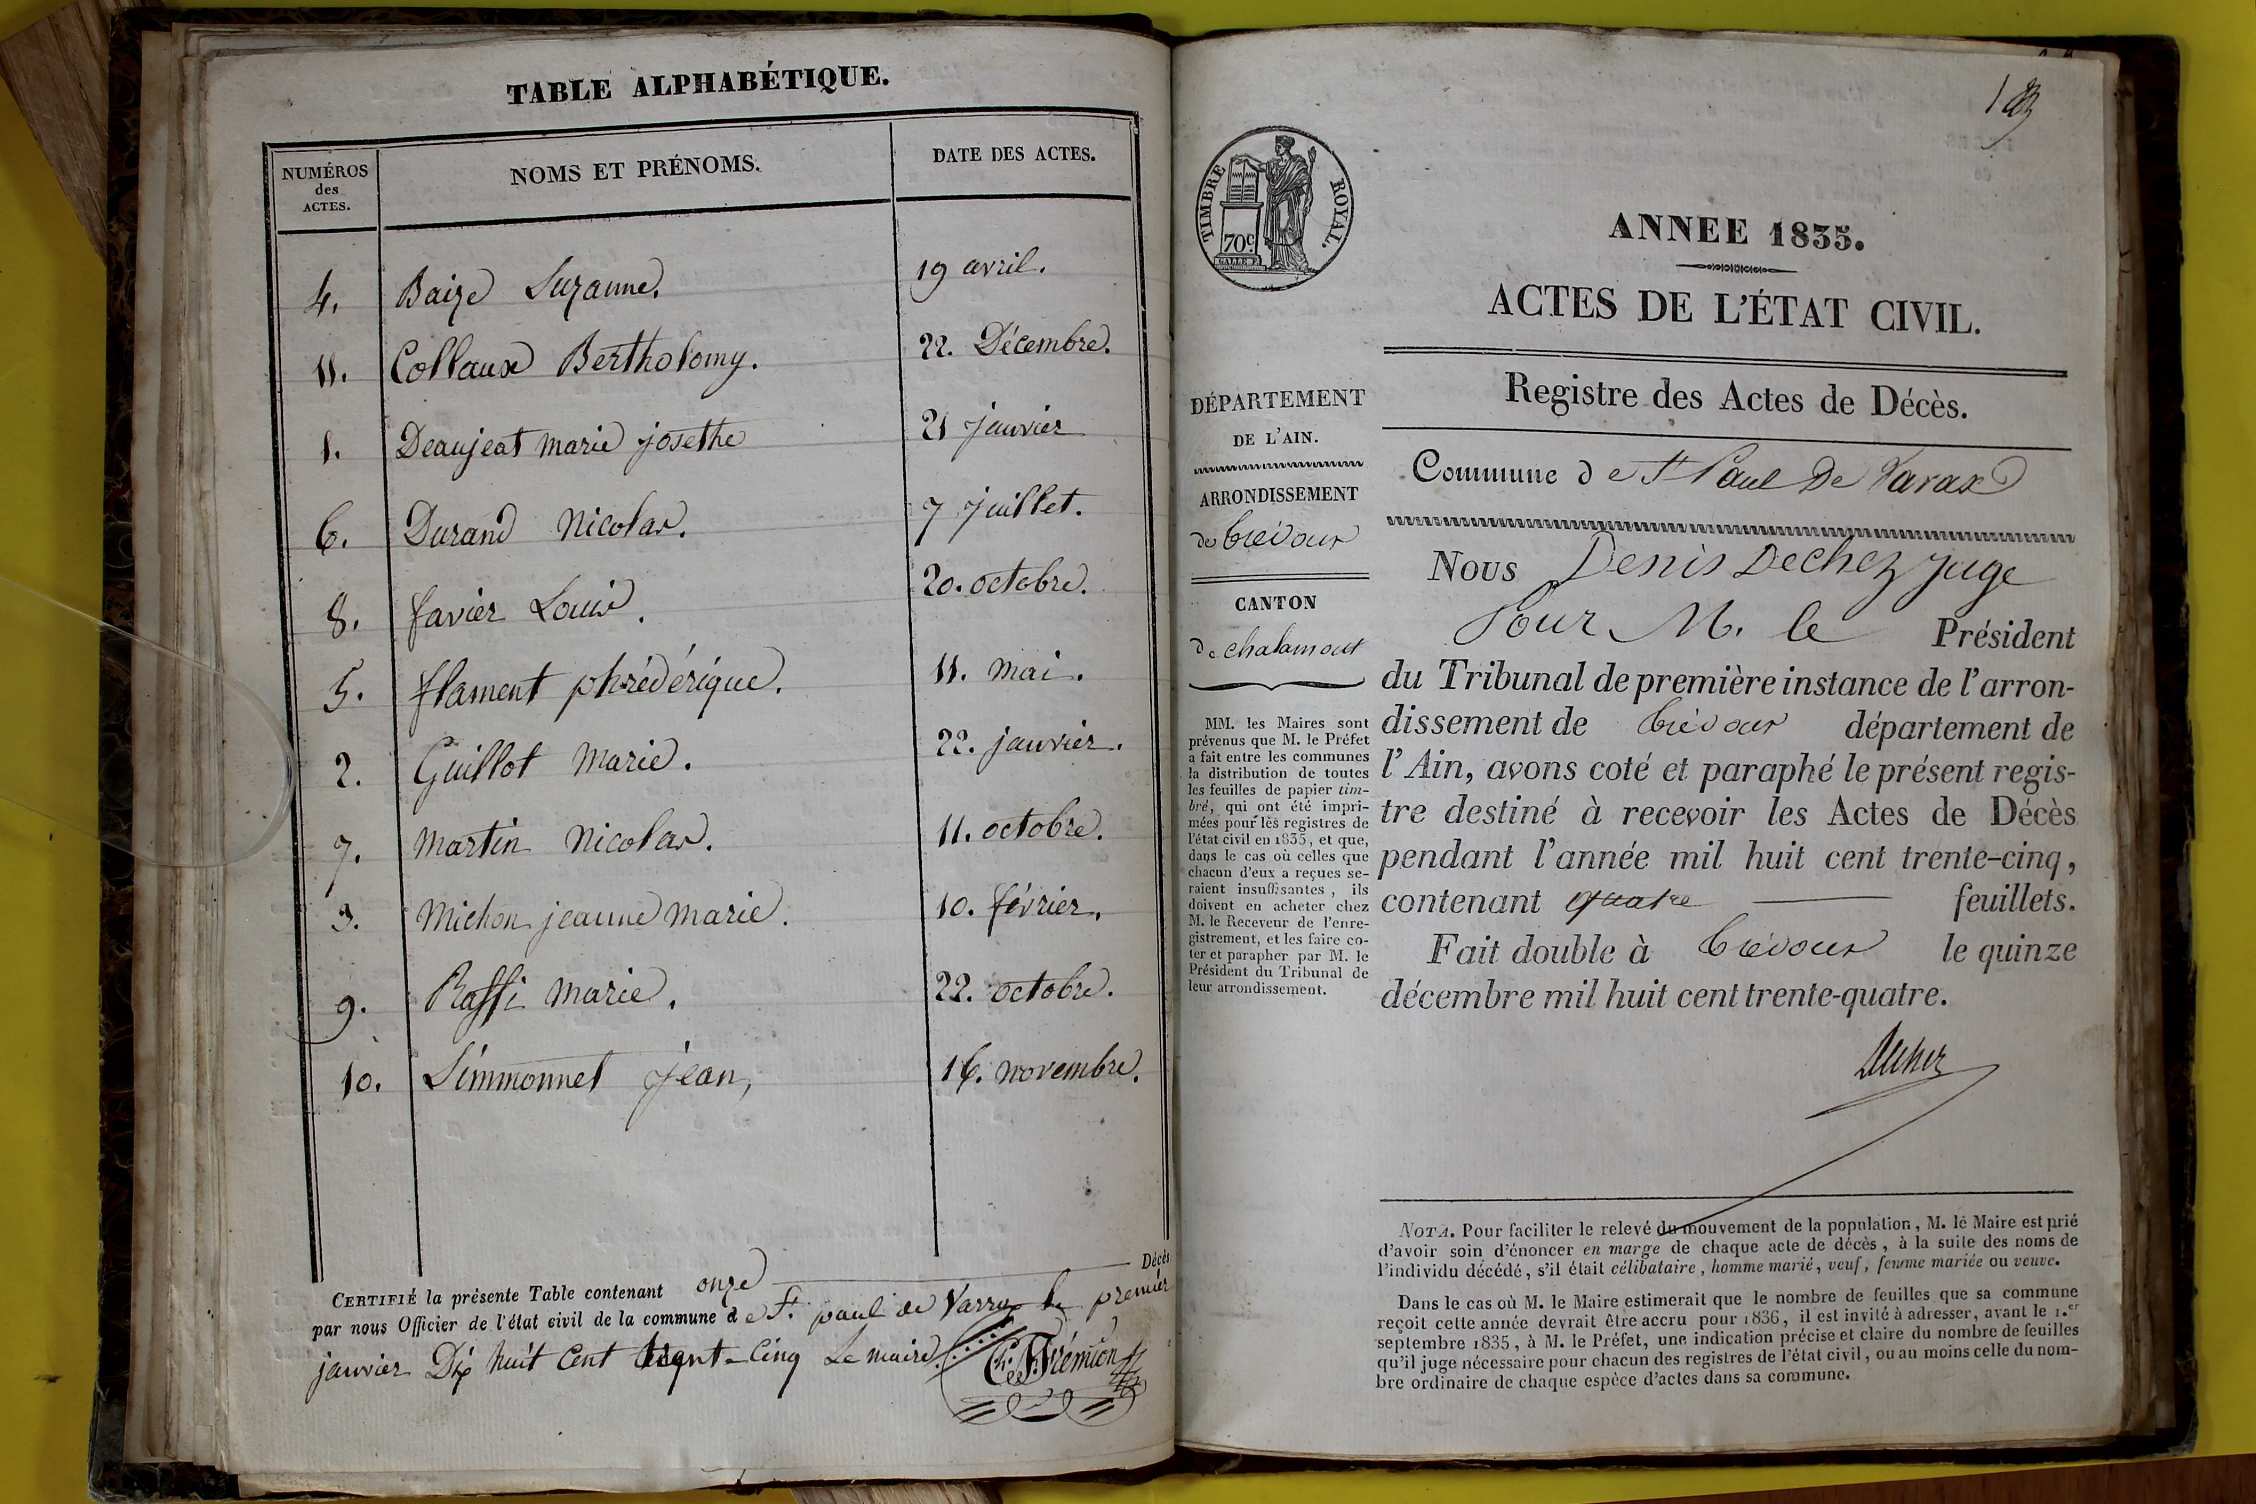 TABLE ALPHABÉTIQUE.
NUMÉROS des ACTES. NOMS ET PRÉNOMS. DATE DES ACTES.
4. Baize Suzanne. 19 avril.
11. Collaux Bertholomy. 22. Décembre.
1. Deaujeat marie josethe 21 janvier
6. Durand Nicolas. 7 juillet.
8. favier Louis. 20. octobre.
5. flament phrédérique. 11. mai.
2. Guillot Marie. 22. janvier.
7. Martin Nicolas. 11. octobre.
3. Michon jeanne marie. 10. février.
9. Raffi marie. 22. octobre.
10. Simmonnet jean, 16. novembre.
CERTIFIÉ la présente Table contenant onze Décès
par nous Officier de l'état civil de la commune de St. paul de Varax le premier
janvier Dix huit Cent trent-Cinq Le maire
Frémion
TIMBRE ROYAL.
70c.
ANNEE 1835.
ACTES DE L'ÉTAT CIVIL.
Registre des Actes de Décès.
DÉPARTEMENT
DE L'AIN.
ARRONDISSEMENT
de trévoux
CANTON
de chalamont
MM. les Maires sont
prévenus que M. le Préfet
a fait entre les communes
la distribution de toutes
les feuilles de papier tim-
bré, qui ont été impri-
mées pour les registres de
l'état civil en 1835, et que,
dans le cas où celles que
chacun d'eux a reçues se-
raient insuffisantes, ils
doivent en acheter chez
M. le Receveur de l'enre-
gistrement, et les faire co-
ter et parapher par M. le
Président du Tribunal de
leur arrondissement.
Commune de St Paul De Varax
Nous Denis Dechez juge
Pour M. le Président
du Tribunal de première instance de l'arron-
dissement de trévoux département de
l'Ain, avons coté et paraphé le présent regis-
tre destiné à recevoir les Actes de Décès
pendant l'année mil huit cent trente-cinq,
contenant quatre feuillets.
Fait double à trévoux le quinze
décembre mil huit cent trente-quatre.
Dechez
NOTA. Pour faciliter le relevé du mouvement de la population, M. le Maire est prié
d'avoir soin d'énoncer en marge de chaque acte de décès, à la suite des noms de
l'individu décédé, s'il était célibataire, homme marié, veuf, femme mariée ou veuve.
Dans le cas où M. le Maire estimerait que le nombre de feuilles que sa commune
reçoit cette année devrait être accru pour 1836, il est invité à adresser, avant le 1.er
septembre 1835, à M. le Préfet, une indication précise et claire du nombre de feuilles
qu'il juge nécessaire pour chacun des registres de l'état civil, ou au moins celle du nom-
bre ordinaire de chaque espèce d'actes dans sa commune.